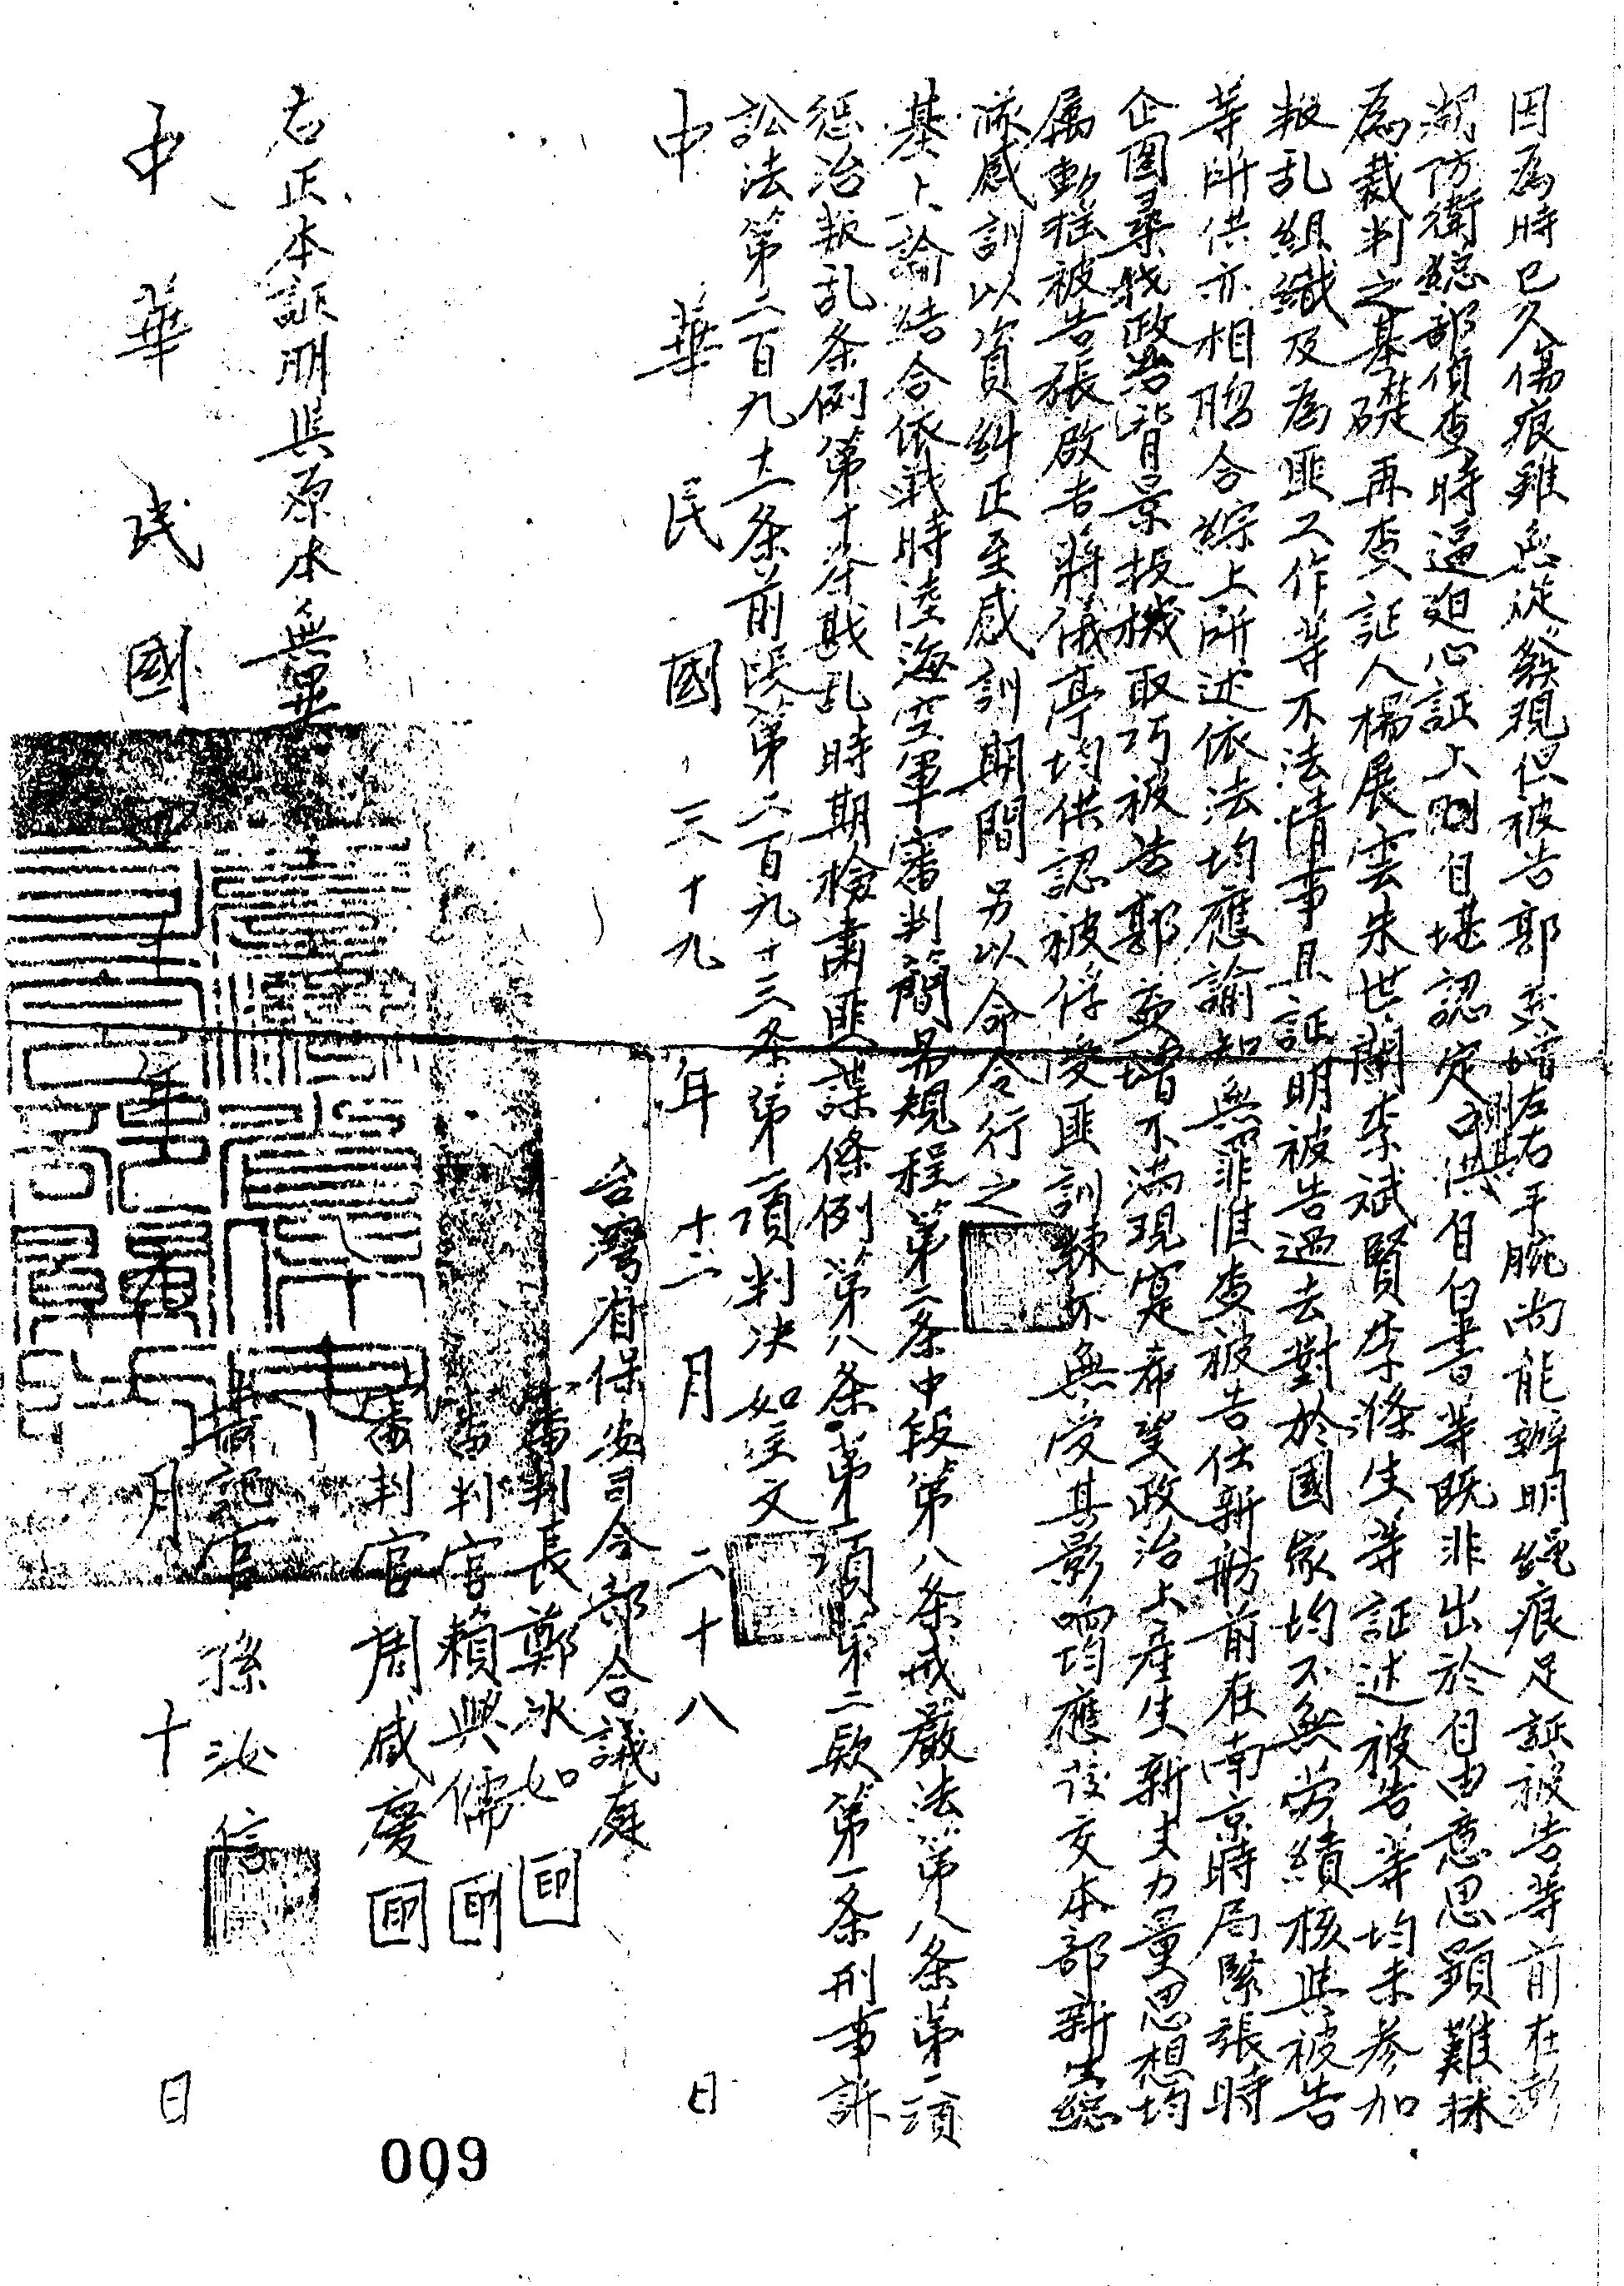 因為時已久傷痕雖無從發現但被告郭亦增左右手腕尚能辦明繩痕足証被告等前在澎
湖防衛總部偵查時逼迫心証上則自堪認定則其口供自白書等既非出於自由意思顯難採
為裁判之基礎再查証人楊展雲朱世蘭李斌賢李滌生等証述被告等均未參加
叛乱組織及為匪工作等不法情事且証明被告過去對於國家均不無勞績核與被告
等所供亦相脗合綜上所述依法均應諭知無罪惟查被告任新舫前在南京時局緊張時
企圖尋找政治背景投機取巧被告郭亦增不滿現實希望政治上產生新生力量思想均
屬動搖被告張啟吉蔣儀亭均供認被俘受匪訓練不無受其影响均應發交本部新生總
隊感訓以資糾正至感訓期間另以命令行之
基上論結合依戰時陸海空軍審判簡易規程第二条中段第八条戒嚴法第八条第二項
惩治叛乱条例第十条戡乱時期檢肅匪諜條例第八条第一項第二款第一条刑事訴
訟法第二百九十一条前段第二百九十三条第一項判决如主文
中華民國三十九年十二月二十八日
台灣省保安司令部合議庭
審判長鄭冰如 印
審判官賴興儒 印
審判官周咸慶 印
右正本証明與原本無異
書記官孫汝信
中華民國四十年 月十 日
009